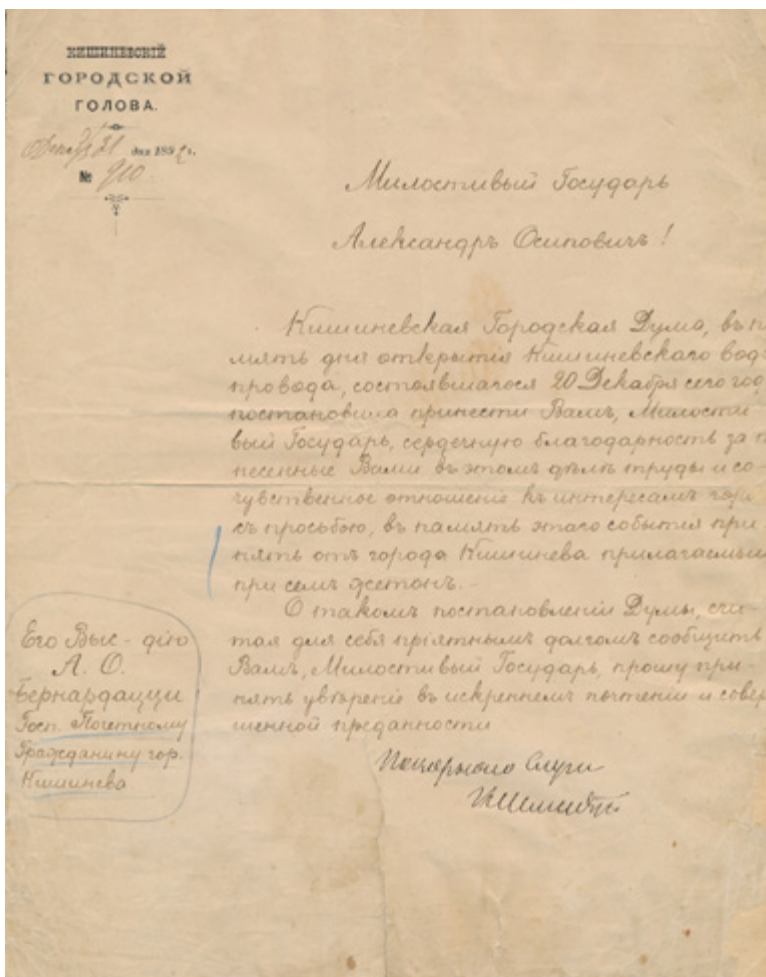 КИШИНЕВСКІЙ
ГОРОДСКОЙ
ГОЛОВА.
21 дня 1892 г.
№ 910
Милостивый Государь
Александръ Осиповичъ!
Кишиневская Городская Дума, въ п
мять дня открытія Кишиневскаго вод
провода, состоявшагося 20 Декабря сего год
постановила принести Вамъ, Милости-
вый Государь, сердечную благодарность за п
несенные Вами въ этомъ дѣлѣ труды и со-
чувственное отношеніе къ интересамъ гор
съ просьбою, въ память этаго событія при-
нять отъ города Кишинева прилагаемый
при семъ жетонъ. -
О такомъ постановленіи Думы, счи-
тая для себя пріятнымъ долгомъ сообщить
Вамъ, Милостивый Государь, прошу при-
нять увѣреніе въ искреннемъ почтеніи и совер
шенной преданности
Его Выс-дію
А. О.
Бернардацци
Госп. Почетному
Гражданину гор.
Кишинева
Слуги